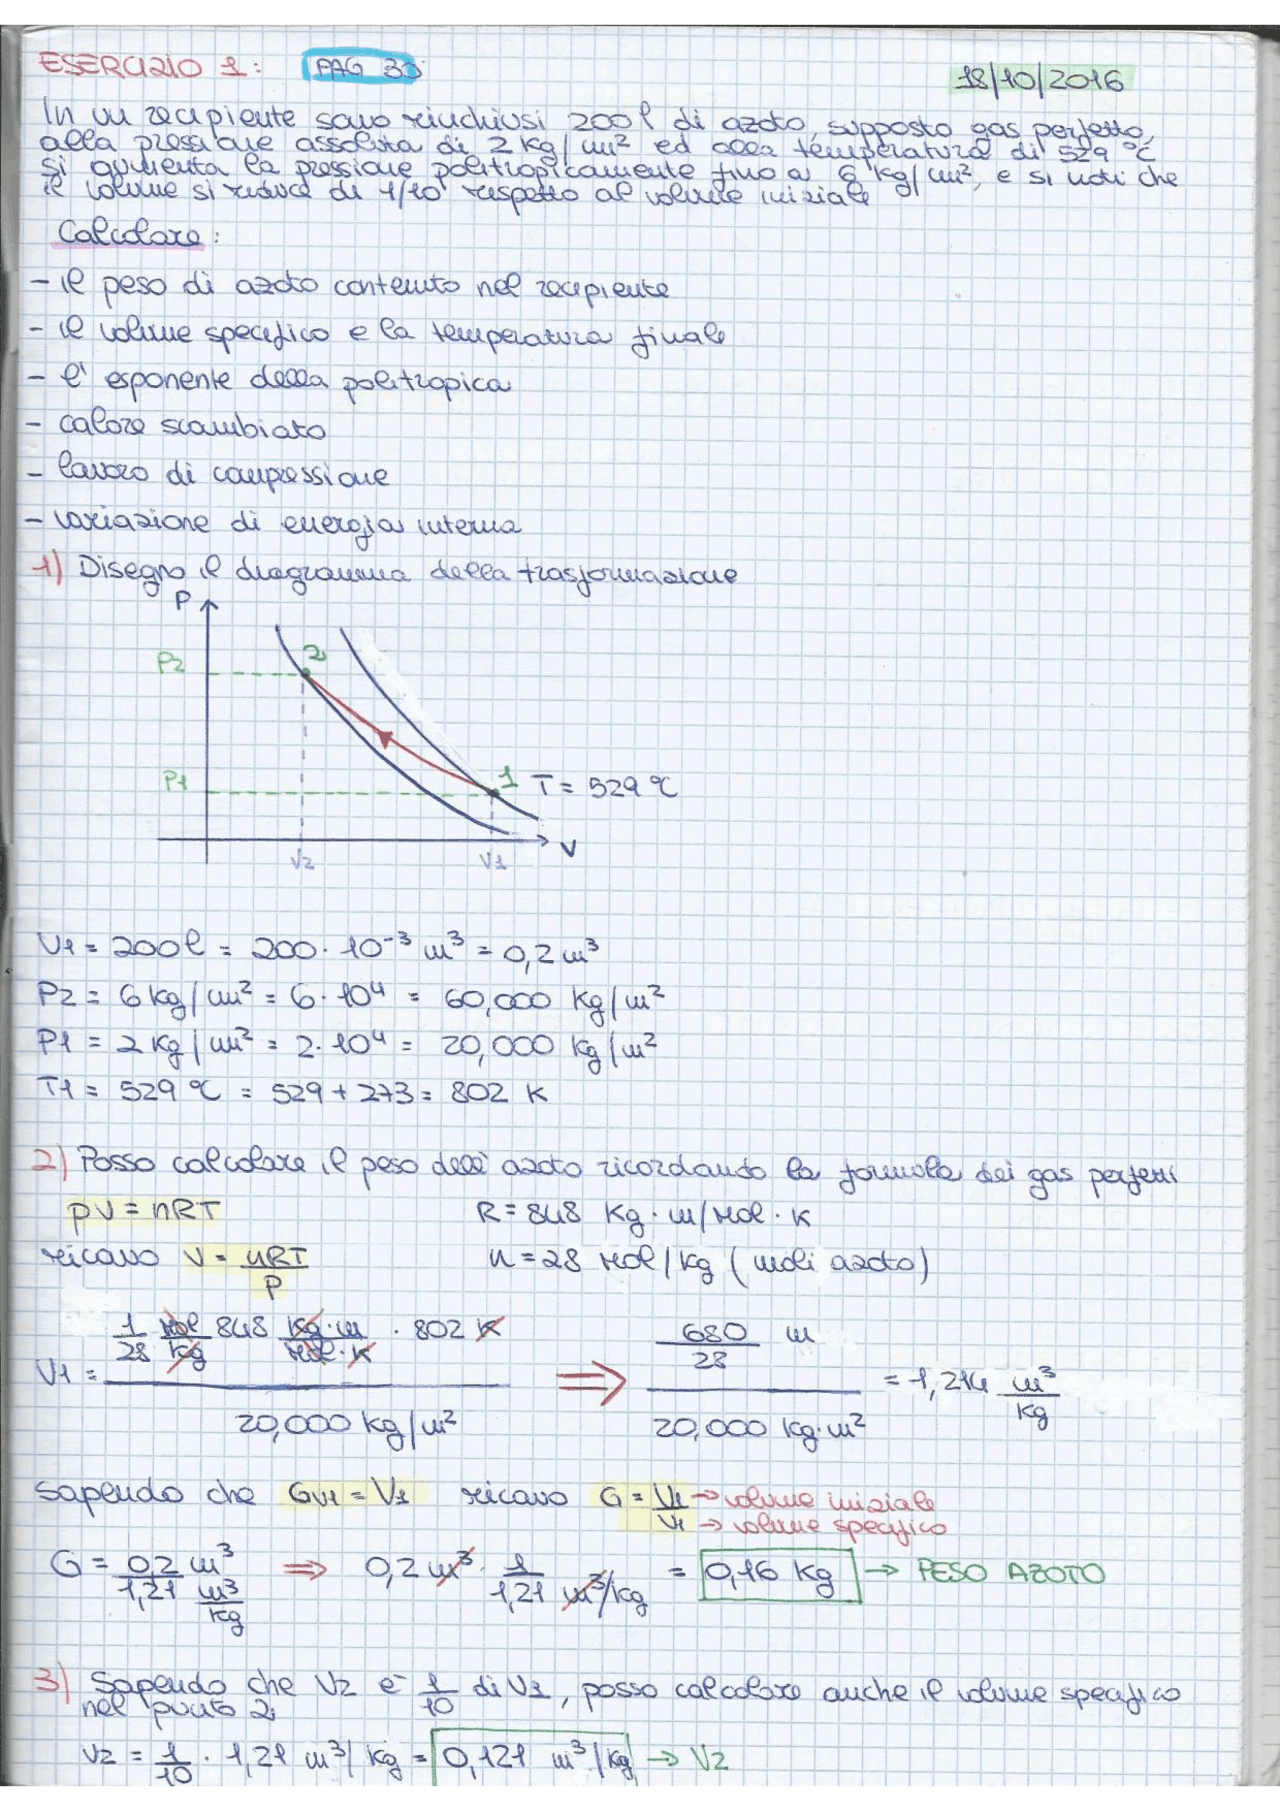 ESERCIZIO 1: PAG 30
18/10/2016
In un recipiente sono rinchiusi 200 l di azoto, supposto gas perfetto,
alla pressione assoluta di 2 Kg/cm² ed alla temperatura di 529 °C
si aumenta la pressione politropicamente fino a 6 Kg/cm², e si noti che
il volume si riduce di 1/10 rispetto al volume iniziale
Calcolare:
- il peso di azoto contenuto nel recipiente
- il volume specifico e la temperatura finale
- l'esponente della politropica
- calore scambiato
- lavoro di compressione
- variazione di energia interna
1) Disegno il diagramma della trasformazione
P
P2
2
P1
1 T = 529 °C
V2 V1 V
V1 = 200 l = 200 · 10⁻³ m³ = 0,2 m³
P2 = 6 kg/cm² = 6 · 10⁴ = 60,000 Kg/m²
P1 = 2 Kg/cm² = 2 · 10⁴ = 20,000 Kg/m²
T1 = 529 °C = 529 + 273 = 802 K
2) Posso calcolare il peso dell'azoto ricordando la formula dei gas perfetti
pV = nRT R = 848 Kg · m/mol · K
ricavo V = nRT/P n = 28 mol/kg (moli azoto)
V1 = (1/28 mol/kg 848 Kg·m/mol·K · 802 K) / (20,000 kg/m²) ⇒ (680/28 m) / (20,000 kg·m²) = 1,214 m³/kg
Sapendo che Gv1 = V1 ricavo G = V1/v1 → volume iniziale
→ volume specifico
G = 0,2 m³ / 1,21 m³/kg ⇒ 0,2 m³ · 1/1,21 m³/kg = 0,16 Kg → PESO AZOTO
3) Sapendo che V2 è 1/10 di V1, posso calcolare anche il volume specifico
nel punto 2
v2 = 1/10 · 1,21 m³/kg = 0,121 m³/kg → V2